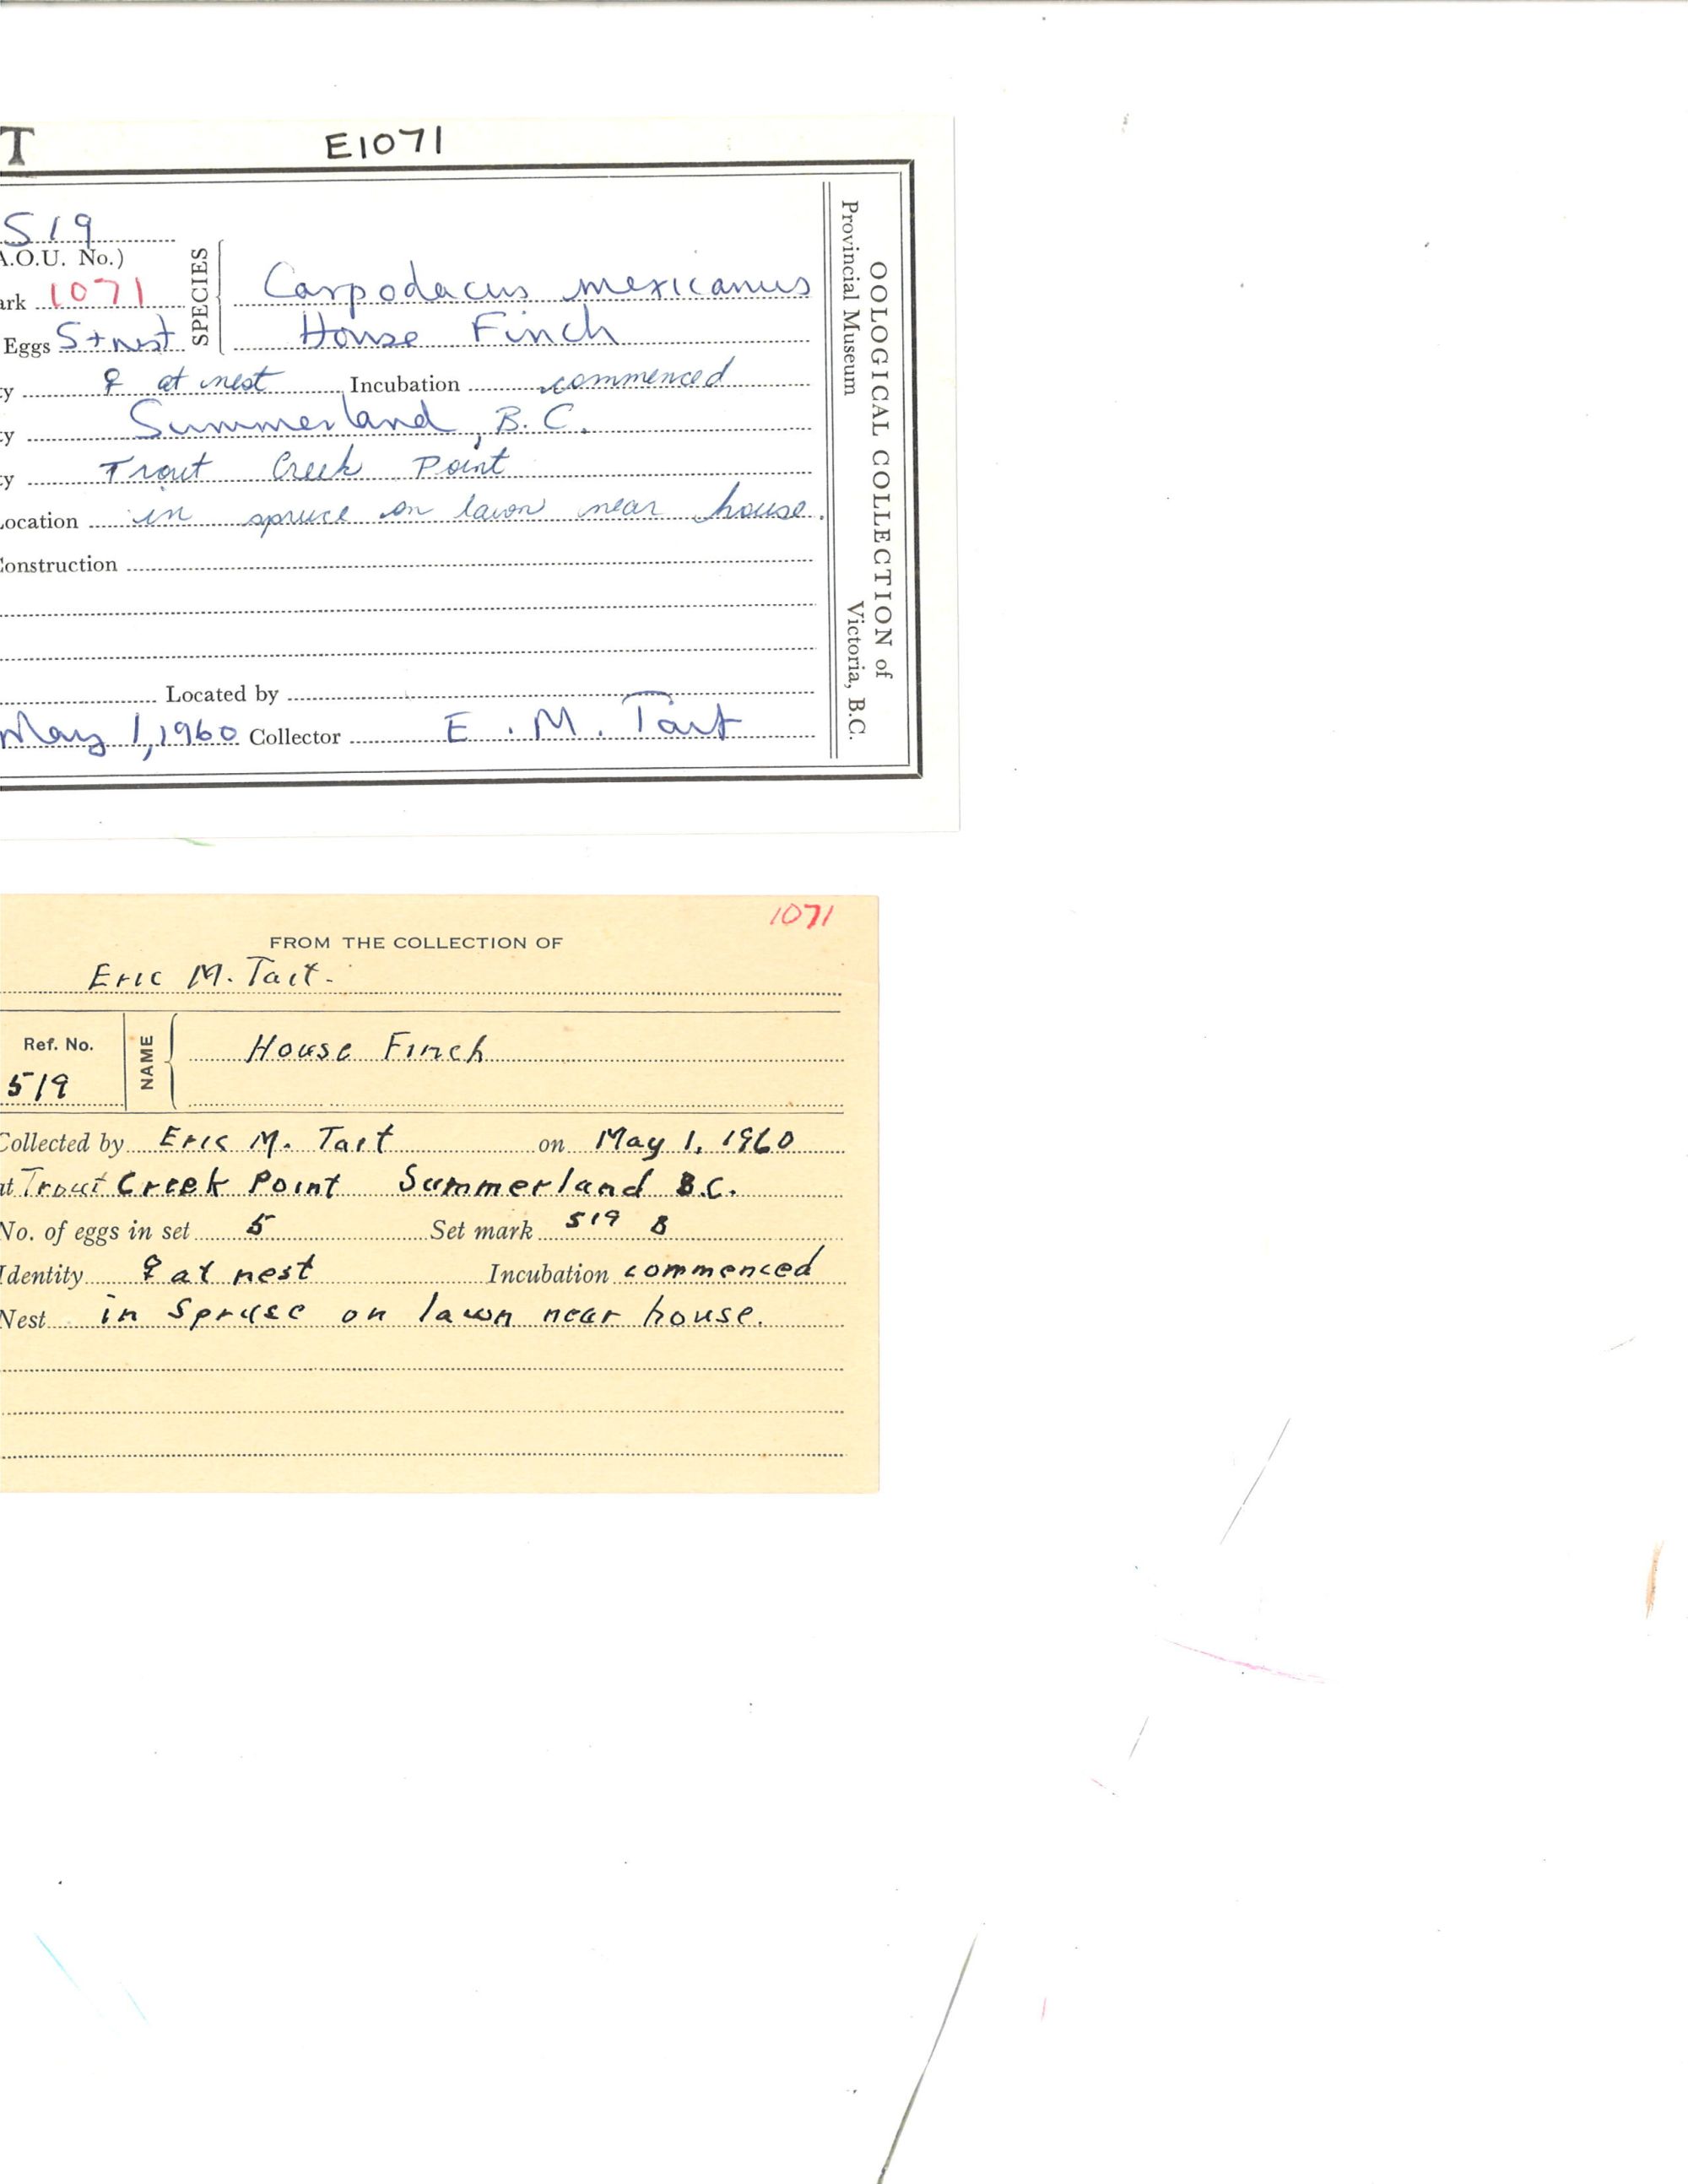 T E1071
519
A.O.U. No.)
ark 1071 SPECIES Carpodacus mexicanus
Eggs 5+nest House Finch
ty ♀ at nest Incubation commenced
ty Summerland, B.C.
ty Trout Creek Point
Location in spruce on lawn near house.
Construction
Located by
May 1, 1960 Collector E. M. Tait
OOLOGICAL COLLECTION of
Provincial Museum Victoria, B.C.
1071
FROM THE COLLECTION OF
Eric M. Tait.
Ref. No. NAME House Finch
519
Collected by Eric M. Tait on May 1, 1960
at Trout Creek Point Summerland B.C.
No. of eggs in set 5 Set mark 519 B
Identity ♀ at nest Incubation commenced
Nest in Spruce on lawn near house.